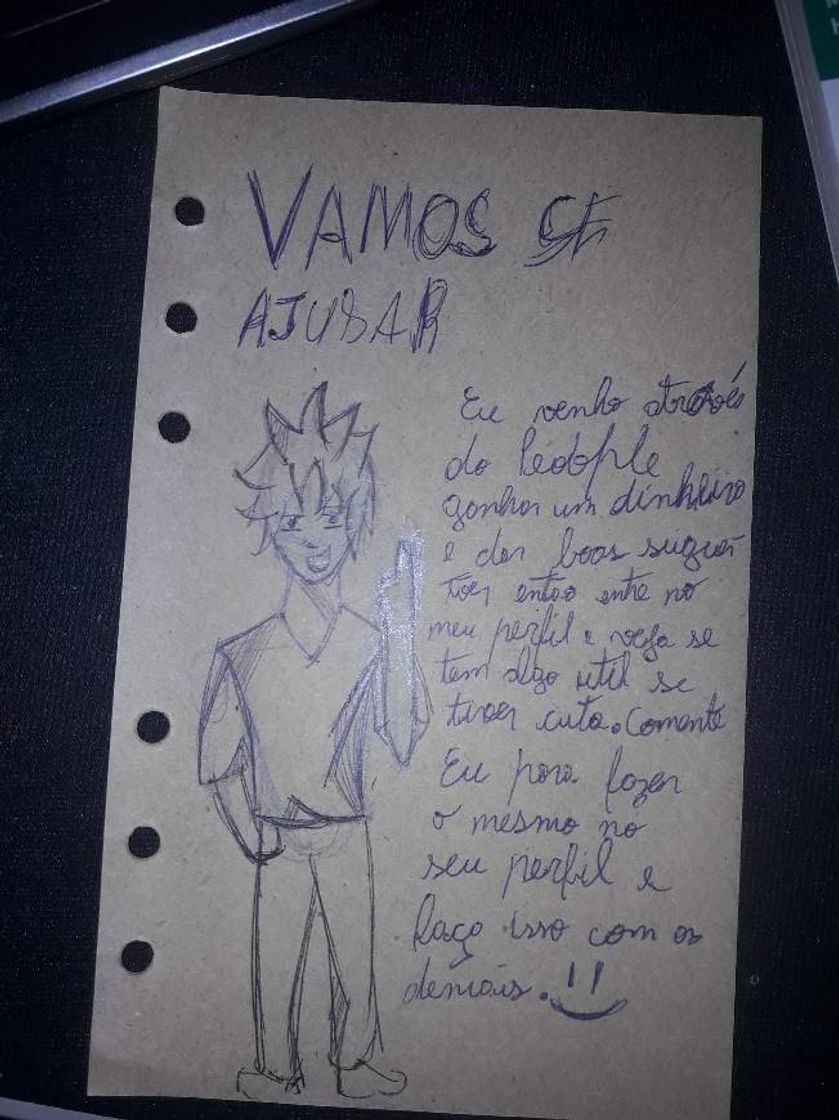 VAMOS SE
AJUDAR
Eu venho através
do Pedople
ganhar um dinheiro
e dar boas suges
tões então entre no
meu perfil e veja se
tem algo util se
tiver curta. Comente
Eu para fazer
o mesmo no
seu perfil e
faço isso com os
demais.!!